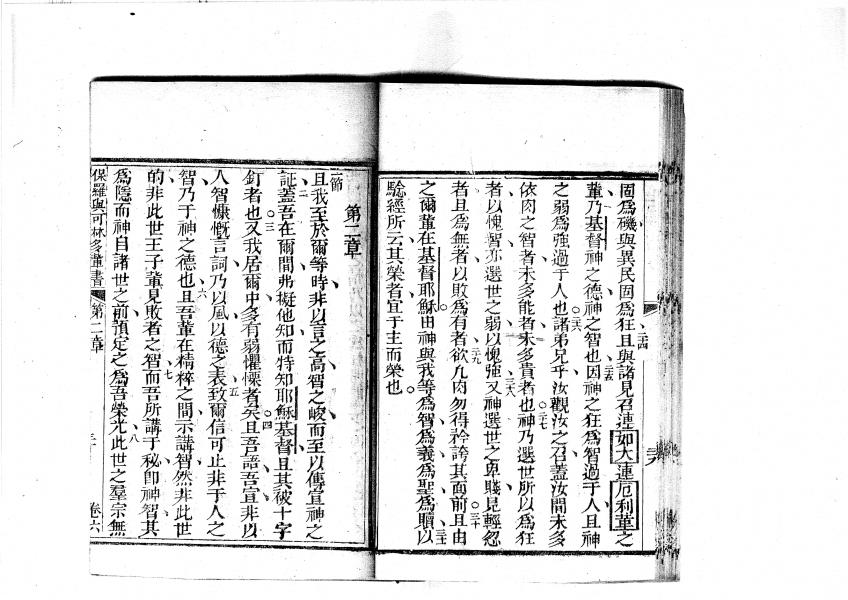 固爲磯與異民固爲狂且與諸見召連如大連厄利輩之
輩乃基督神之德神之智也因神之狂爲智過于人且神
之弱爲強過于人也諸弟兄乎汝觀汝之召蓋汝間未多
依肉之智者未多能者未多貴者也神乃選世所以爲狂
者以愧智亦選世之弱以愧強又神選世之卑賤見輕忽
者且爲無者以敗爲有者欲凡肉勿得矜誇其面前且由
之爾輩在基督耶穌由神與我等爲智爲義爲聖爲贖以
騐經所云其榮者宜于主而榮也
第二章
一節
且我至於爾等時非以言之高智之峻而至以傳宣神之
証蓋吾在爾間弗擬他知而特知耶穌基督且其被十字
釘者也又我居爾中多有弱懼慄者矣且吾語吾宣非以
人智慷慨言詞乃以風以德之表致爾信可止非于人之
智乃于神之德也且吾輩在精粹之間示講智然非此世
的非此世王子輩見敗者之智而吾所講于秘卽神智其
爲隱而神自諸世之前預定之爲吾榮光此世之羣宗無
保羅與可林多輩書 第二章 卷六